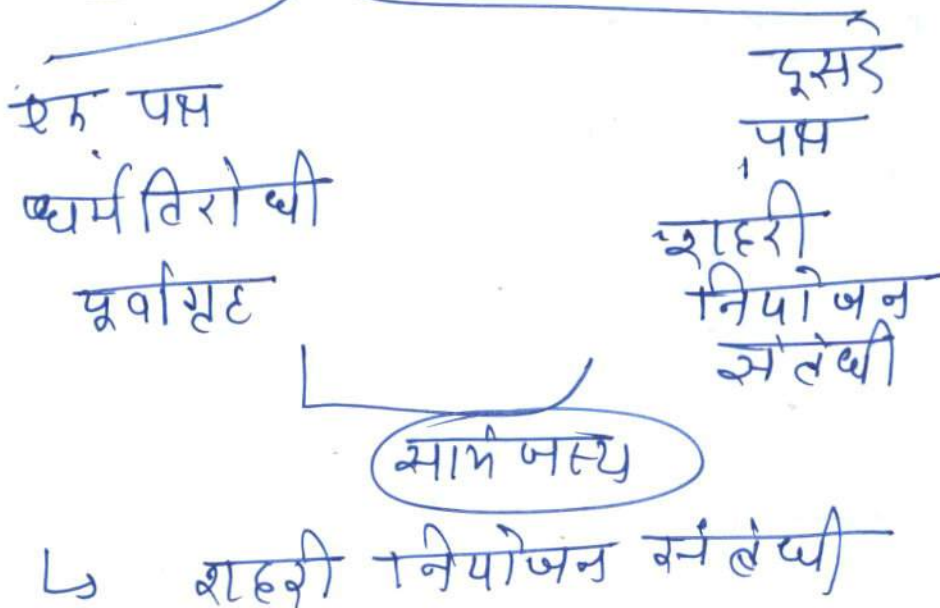 एक पक्ष
धर्म विरोधी
पूर्वाग्रह
दूसरे
पक्ष
शहरी
नियोजन
संबंधी
सामंजस्य
↳ शहरी नियोजन संबंधी